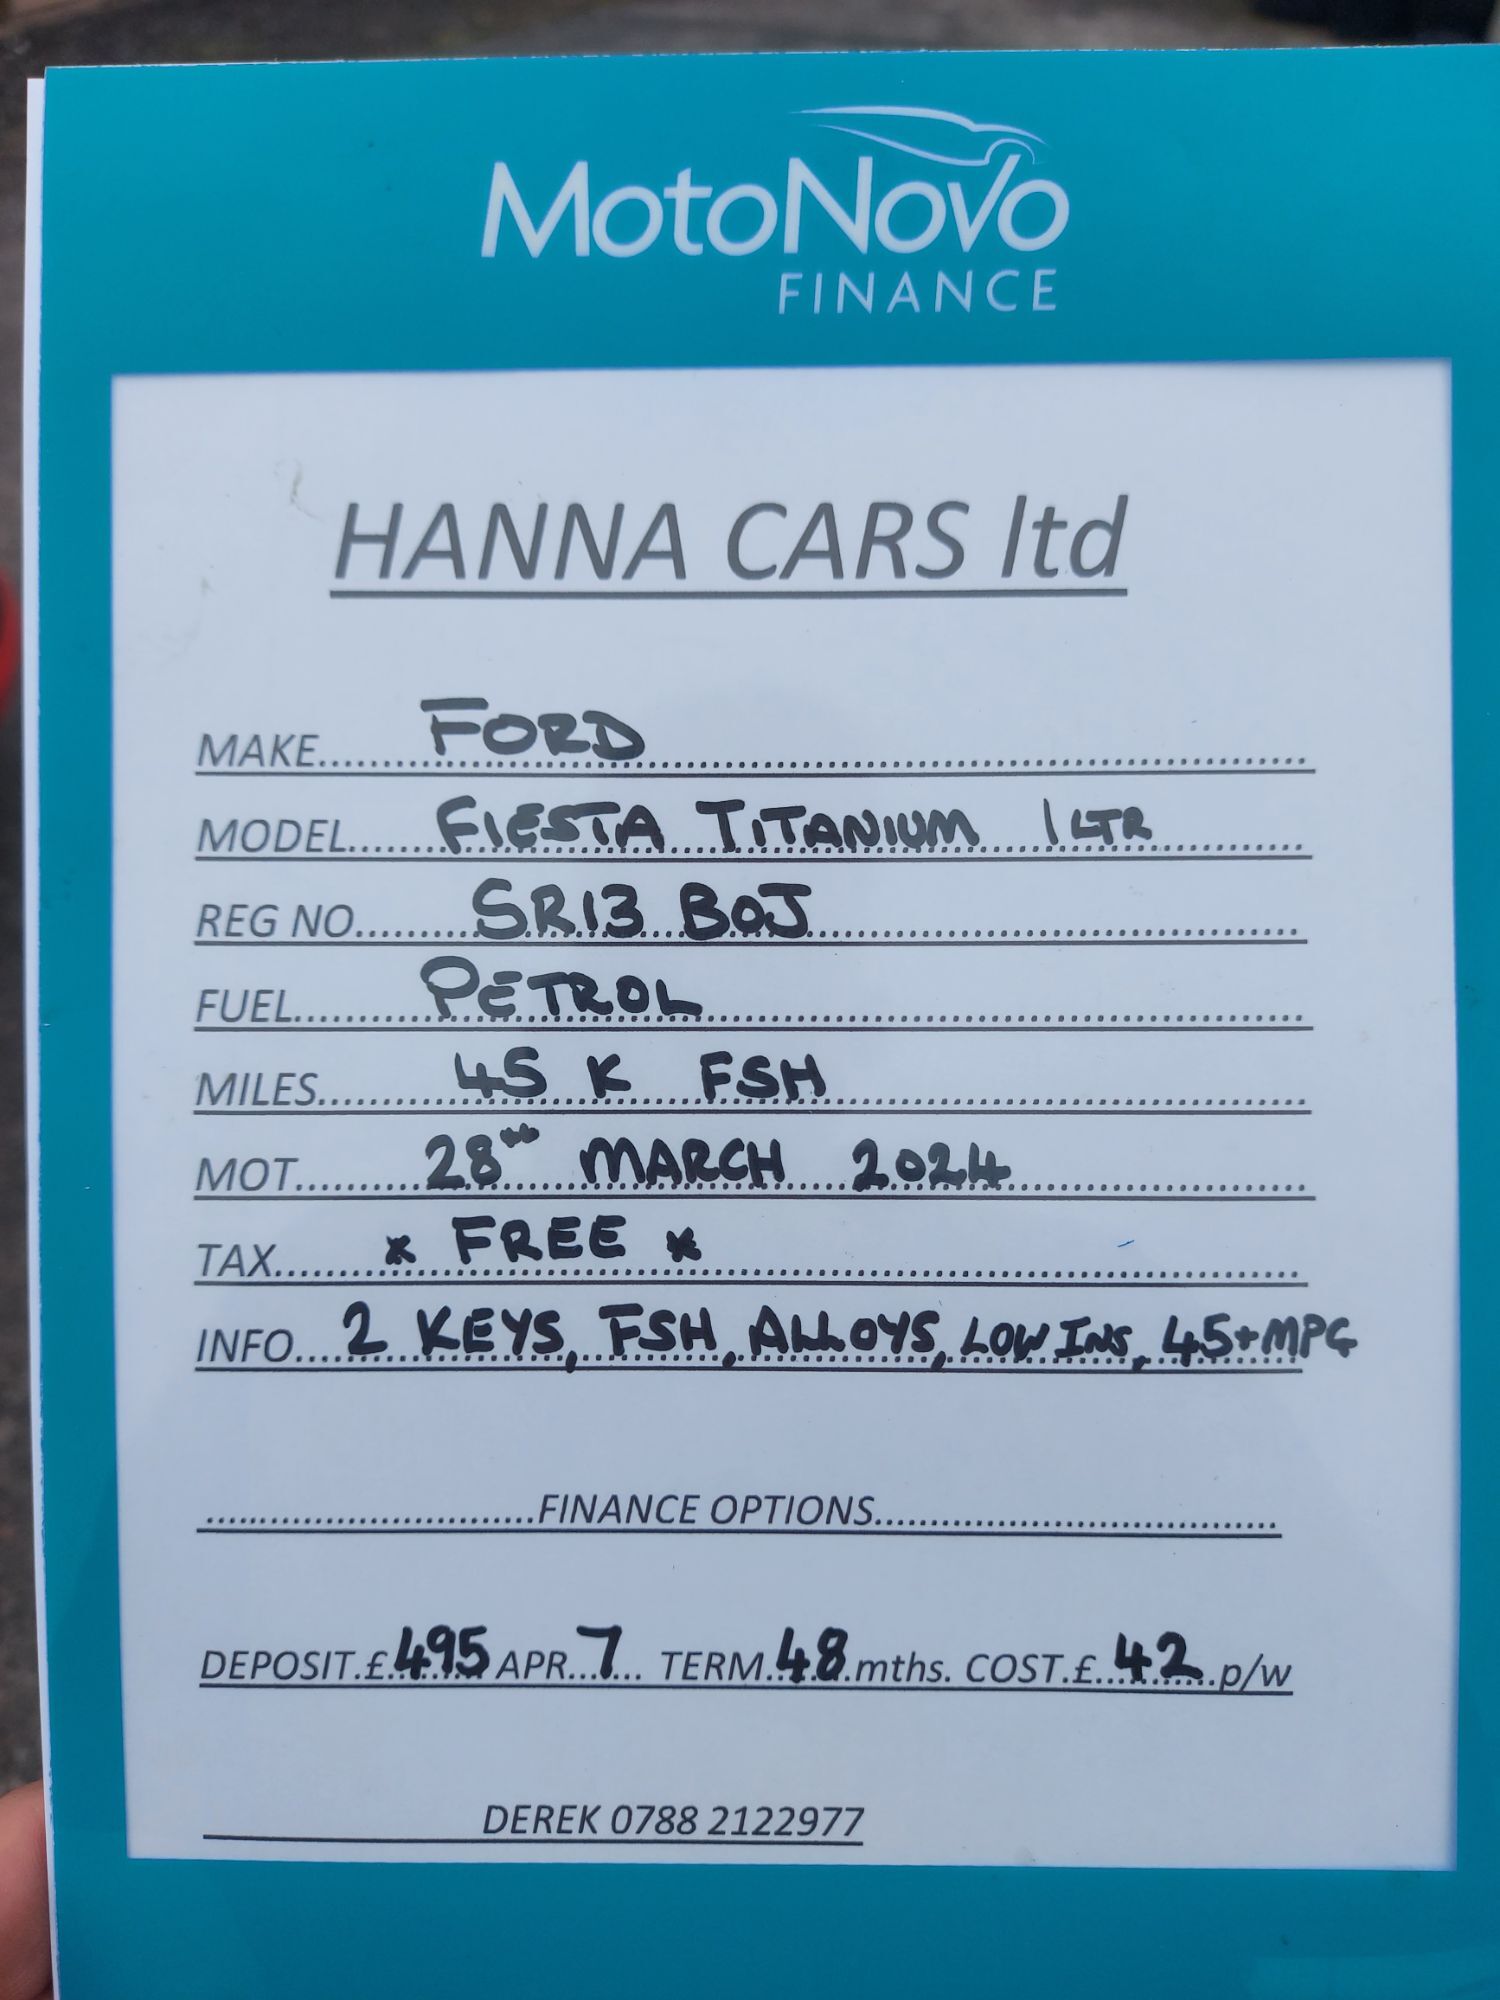 MotoNovo
FINANCE
HANNA CARS ltd
MAKE.....FORD..............................
MODEL.....FIESTA TITANIUM 1 LTR..........
REG NO.....SR13 BOJ..............................
FUEL.....PETROL..............................
MILES.....45 K FSH..............................
MOT.....28TH MARCH 2024....................
TAX.....* FREE *..............................
INFO....2 KEYS, FSH, ALLOYS, LOW INS, 45+MPG
..............................FINANCE OPTIONS..............................
DEPOSIT.£.495 APR...7... TERM.48.mths. COST.£..42..p/w
DEREK 0788 2122977